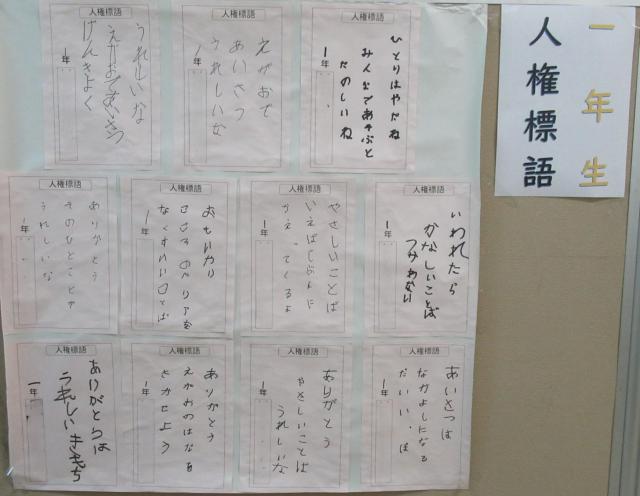 一年生
人権標語
人権標語
ひとりはやだね
みんなであそぶと
たのしいね
1年
人権標語
えがおで
あいさつ
うれしいな
1年
人権標語
うれしいな
えがおであいさつ
げんきよく
1年
人権標語
いわれたら
かなしいことば
つかわない
1年
人権標語
やさしいことば
いえばじぶんに
かえってくるよ
1年
人権標語
おもいやり
こころの
なくすいい
ことば
1年
人権標語
ありがとう
そのひとことが
うれしいな
1年
人権標語
あいさつは
なかよしになる
だいいっぽ
1年
人権標語
ありがとう
やさしいことば
うれしいな
1年
人権標語
ありがとう
えがおのはなを
さかせよう
1年
人権標語
ありがとうは
うれしいきもち
一年